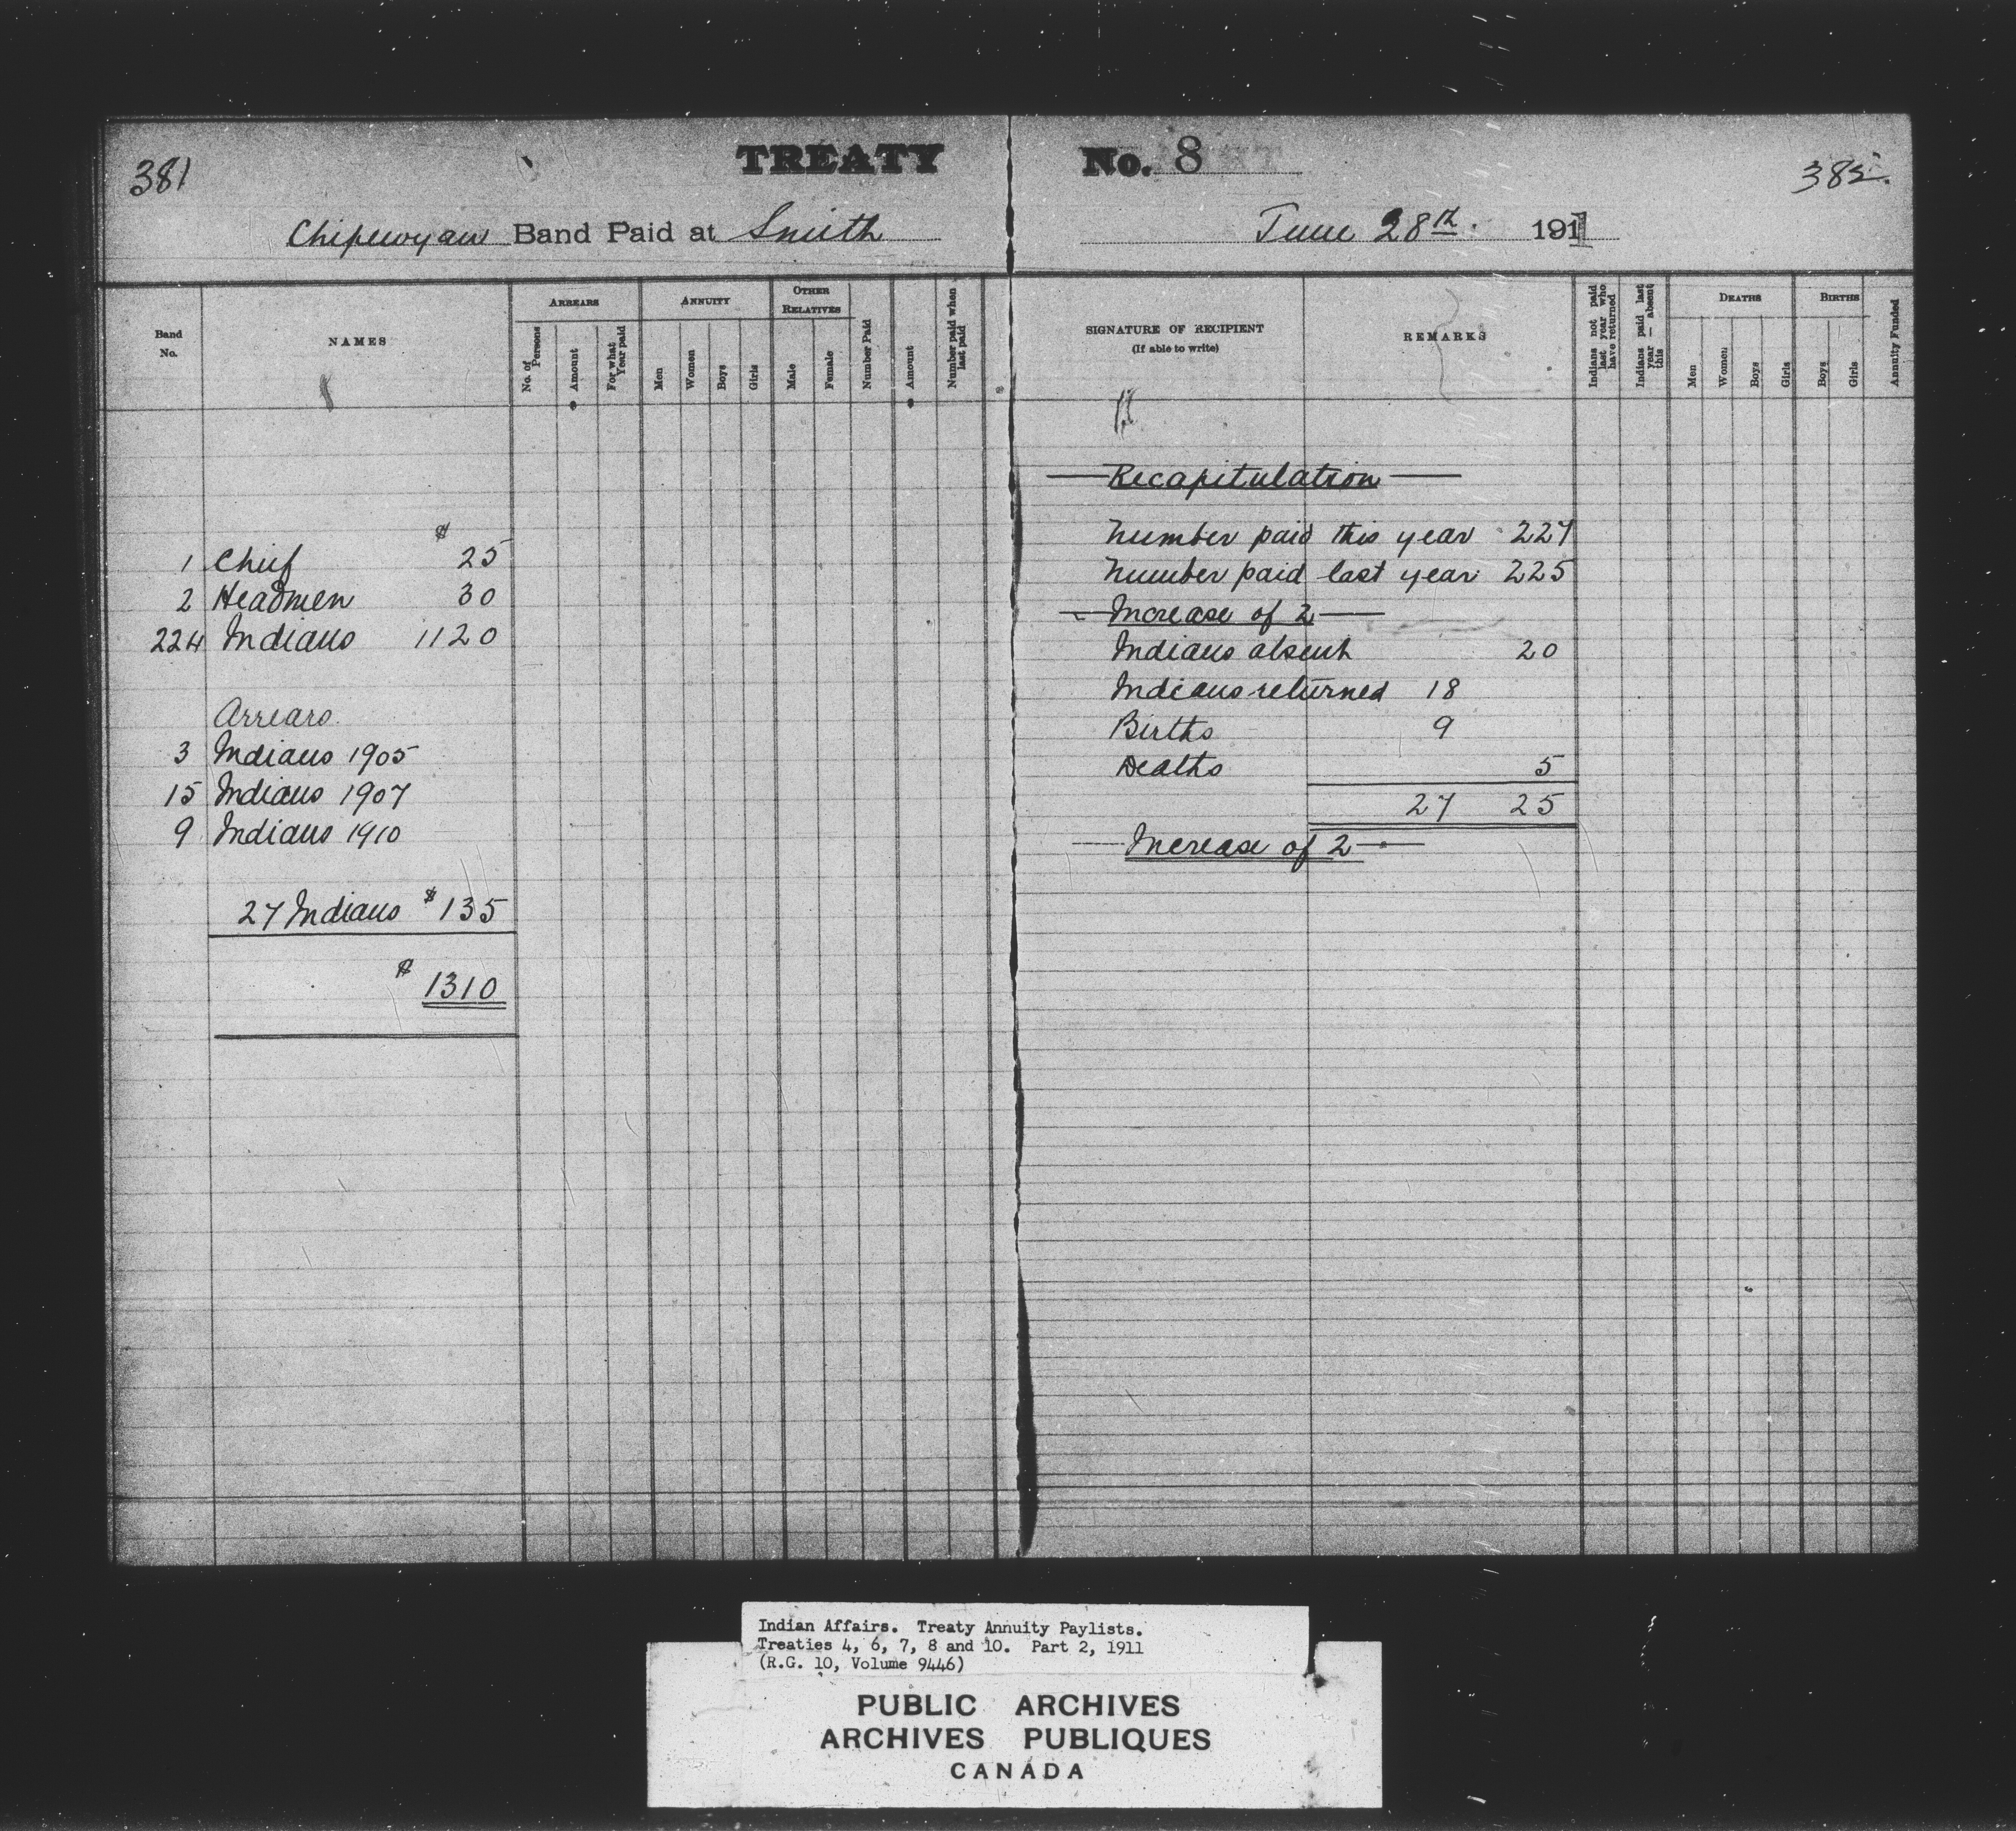 381
TREATY No. 8
385.
Chipewyan Band Paid at Smith
June 28th. 1911
Band No.
NAMES
ARREARS
No. of Persons
Amount
For what Year paid
ANNUITY
Men
Women
Boys
Girls
OTHER RELATIVES
Male
Female
Number Paid
Amount
Number paid when last paid
SIGNATURE OF RECIPIENT
(If able to write)
REMARKS
Indians not paid last year who have returned
Indians paid last year — absent this
DEATHS
Men
Women
Boys
Girls
BIRTHS
Boys
Girls
Annuity Funded
$
1 Chief 25
2 Headmen 30
224 Indians 1120
Arrears.
3 Indians 1905
15 Indians 1907
9 Indians 1910
27 Indians $135
$ 1310
— Recapitulation —
Number paid this year 227
Number paid last year 225
— Increase of 2 —
Indians absent 20
Indians returned 18
Births 9
Deaths 5
27 25
— Increase of 2 —
Indian Affairs. Treaty Annuity Paylists.
Treaties 4, 6, 7, 8 and 10. Part 2, 1911
(R.G. 10, Volume 9446)
PUBLIC ARCHIVES
ARCHIVES PUBLIQUES
CANADA